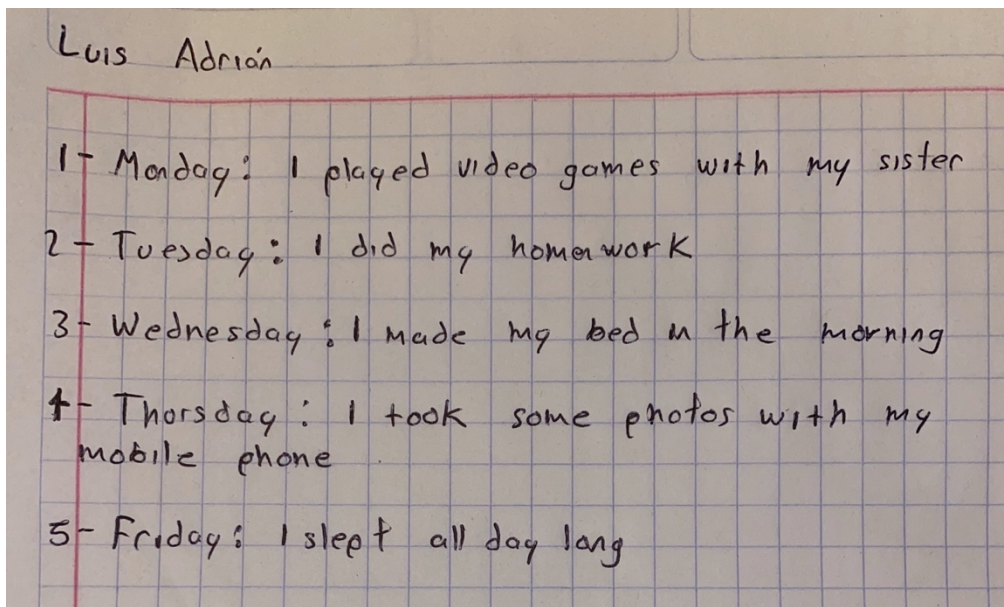 Luis Adrián
1- Monday: I played video games with my sister
2- Tuesday: I did my homework
3- Wednesday: I made my bed in the morning
4- Thorsday: I took some photos with my
mobile phone
5- Friday: I slept all day long